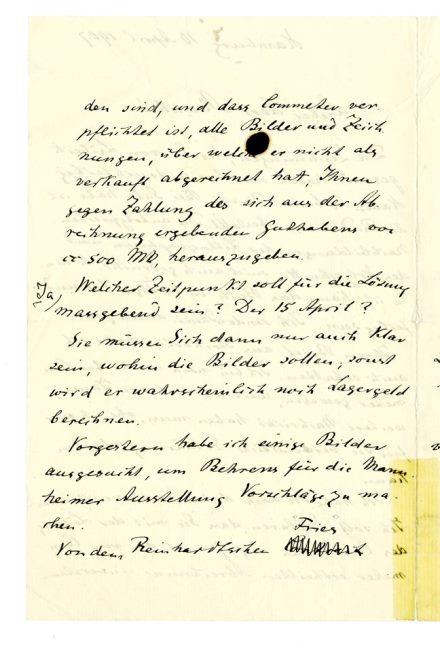 den sind, und dass Commeter ver-
pflichtet ist, alle Bilder und Zeich-
nungen, über welche er nicht als
verkauft abgerechnet hat, Ihnen
gegen Zahlung des sich aus der Ab-
rechnung ergebenden Guthabens von
cc 500 Mk, herauszugeben.
Welcher Zeitpunkt soll für die Lösung
Ja)
massgebend sein? Der 15 April?
Sie müssen Sich dann nur auch klar
sein, wohin die Bilder sollen, sonst
wird er wahrscheinlich noch Lagergeld
berechnen.
Vorgestern habe ich einige Bilder
ausgesucht, um Behrens für die Mann-
heimer Ausstellung Vorschläge zu ma-
chen.
Fries
Von dem Reinhardtschen